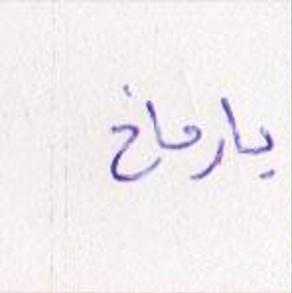 يارماخ